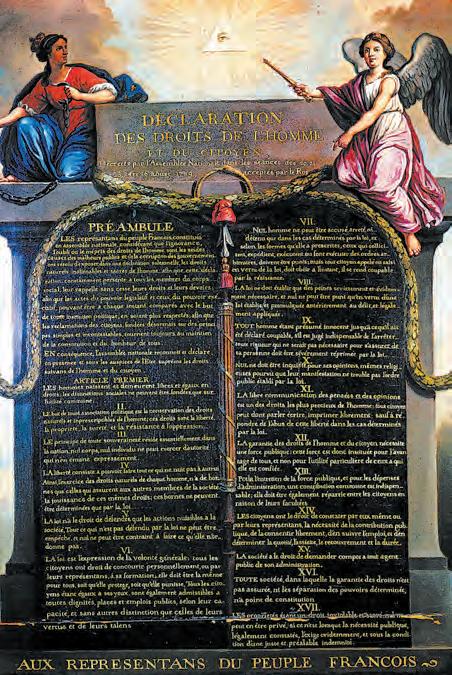 DÉCLARATION
DES DROITS DE L'HOMME
ET DU CITOYEN,
Décrétés par l'Assemblée Nationale dans les séances des 20, 21
acceptés par le Roi
PRÉAMBULE
LES représentans du peuple Francois, constitués
en assemblée nationale, considérant que l'ignorance,
l'oubli ou le mépris des droits de l'homme sont les seules
causes des malheurs publics et de la corruption des gouvernemens
ont résolu d'exposer dans une déclaration solemnelle, les droits
naturels, inaliénables et sacrés de l'homme, afin que cette décla-
ration, constamment présente à tous les membres du corps
social, leur rappelle sans cesse leurs droits et leurs devoirs;
afin que les actes du pouvoir législatif et ceux du pouvoir exé-
cutif, pouvant être à chaque instant comparés avec le but
de toute institution politique, en soient plus respectés; afin que
les réclamations des citoyens, fondées désormais sur des princi-
pes simples et incontestables, tournent toujours au maintien
de la constitution et du bonheur de tous.
EN conséquence, l'assemblée nationale reconnoit et déclare
en presence et sous les auspices de l'Etre suprême les droits
suivans de l'homme et du citoyen.
ARTICLE PREMIER.
LES hommes naissent et demeurent libres et égaux en
droits; les distinctions sociales ne peuvent être fondées que sur
l'utilité commune.
II.
LE but de toute association politique est la conservation des droits
naturels et imprescriptibles de l'homme; ces droits sont la liberté,
la propriété, la sureté et la résistance à l'oppression.
III.
LE principe de toute souveraineté réside essentiellement dans
la nation, nul corps, nul individu ne peut exercer d'autorité
qui n'en émane expressément.
IV.
LA liberté consiste à pouvoir faire tout ce qui ne nuit pas à autrui
Ainsi, l'exercice des droits naturels de chaque homme, n'a de bor-
nes que celles qui assurent aux autres membres de la société
la jouissance de ces mêmes droits; ces bornes ne peuvent
être déterminées que par la loi.
V.
LA loi n'a le droit de défendre que les actions nuisibles à la
société. Tout ce qui n'est pas défendu par la loi ne peut être
empêché, et nul ne peut être contraint à faire ce qu'elle n'or-
donne pas.
VI.
LA loi est l'expression de la volonté générale; tous les
citoyens ont droit de concourir personnellement, ou par
leurs représentans, à sa formation; elle doit être la même
pour tous, soit qu'elle protege, soit qu'elle punisse. Tous les cito-
yens étant égaux à ses yeux, sont également admissibles à
toutes dignités, places et emplois publics, selon leur ca-
pacité, et sans autres distinction que celles de leurs
vertus et de leurs talens
VII.
NUL homme ne peut être accusé, arreté ni
détenu que dans les cas déterminés par la loi, et
selon les formes qu'elle a prescrites. ceux qui sollici-
tent, expédient, exécutent ou font exécuter des ordres ar-
bitraires, doivent être punis; mais tout citoyen appelé ou saisi
en vertu de la loi, doit obéir à l'instant, il se rend coupable
par la résistance.
VIII.
LA loi ne doit établir que des peines strictement et évidem-
ment nécessaire, et nul ne peut être puni qu'en vertu d'une
loi établie et promulguée antérieurement au délit, et légale-
ment appliquée.
IX.
TOUT homme étant présumé innocent jusqu'à ce qu'il ait
été déclaré coupable, s'il est jugé indispensable de l'arrêter,
toute rigueur qui ne serait pas nécessaire pour s'assurer de
sa personne doit être sévèrement réprimée par la loi.
NUL ne doit être inquiété pour ses opinions, mêmes religi-
euses pourvu que leur manifestation ne trouble pas l'ordre
public établi par la loi.
XI.
LA libre communication des pensées et des opinions
est un des droits les plus precieux de l'homme: tout citoyen
peut donc parler écrire, imprimer librement: sauf à ré-
pondre de l'abus de cette liberté dans les cas déterminés
par la loi.
XII.
LA garantie des droits de l'homme et du citoyen nécessite
une force publique: cette force est donc instituée pour l'avan-
tage de tous, et non pour l'utilité particuliere de ceux à qui
elle est confiée.
XIII.
Pour l'entretien de la force publique, et pour les dépenses
d'administration, une contribution commune est indispen-
sable; elle doit être également répartie entre les citoyens en
raison de leurs facultées.
XIV.
LES citoyens ont le droit de constater par eux même ou
par leurs représentans, la nécessité de la contribution pub-
lique, de la consentir librement, d'en suivre l'emploi, et d'en
déterminer la quotité, l'assiette, le recouvrement et la durée.
XV.
LA société a le droit de demander compte a tout agent
public de son administration.
XVI.
TOUTE société, dans laquelle la garantie des droits n'est
pas assurée, ni la séparation des pouvoirs déterminée,
n'a point de constitution.
XVII.
LES propriétés étant un droit inviolable et sacré, nul ne
peut en être privé, si ce n'est lorsque la nécessité publique,
légalement constatée, l'exige evidemment, et sous la condi-
tion d'une juste et préalable indemnité.
AUX REPRESENTANS DU PEUPLE FRANCOIS